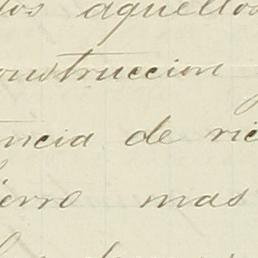 los aquellos
onstruccion
ncia de ric
ierro mas